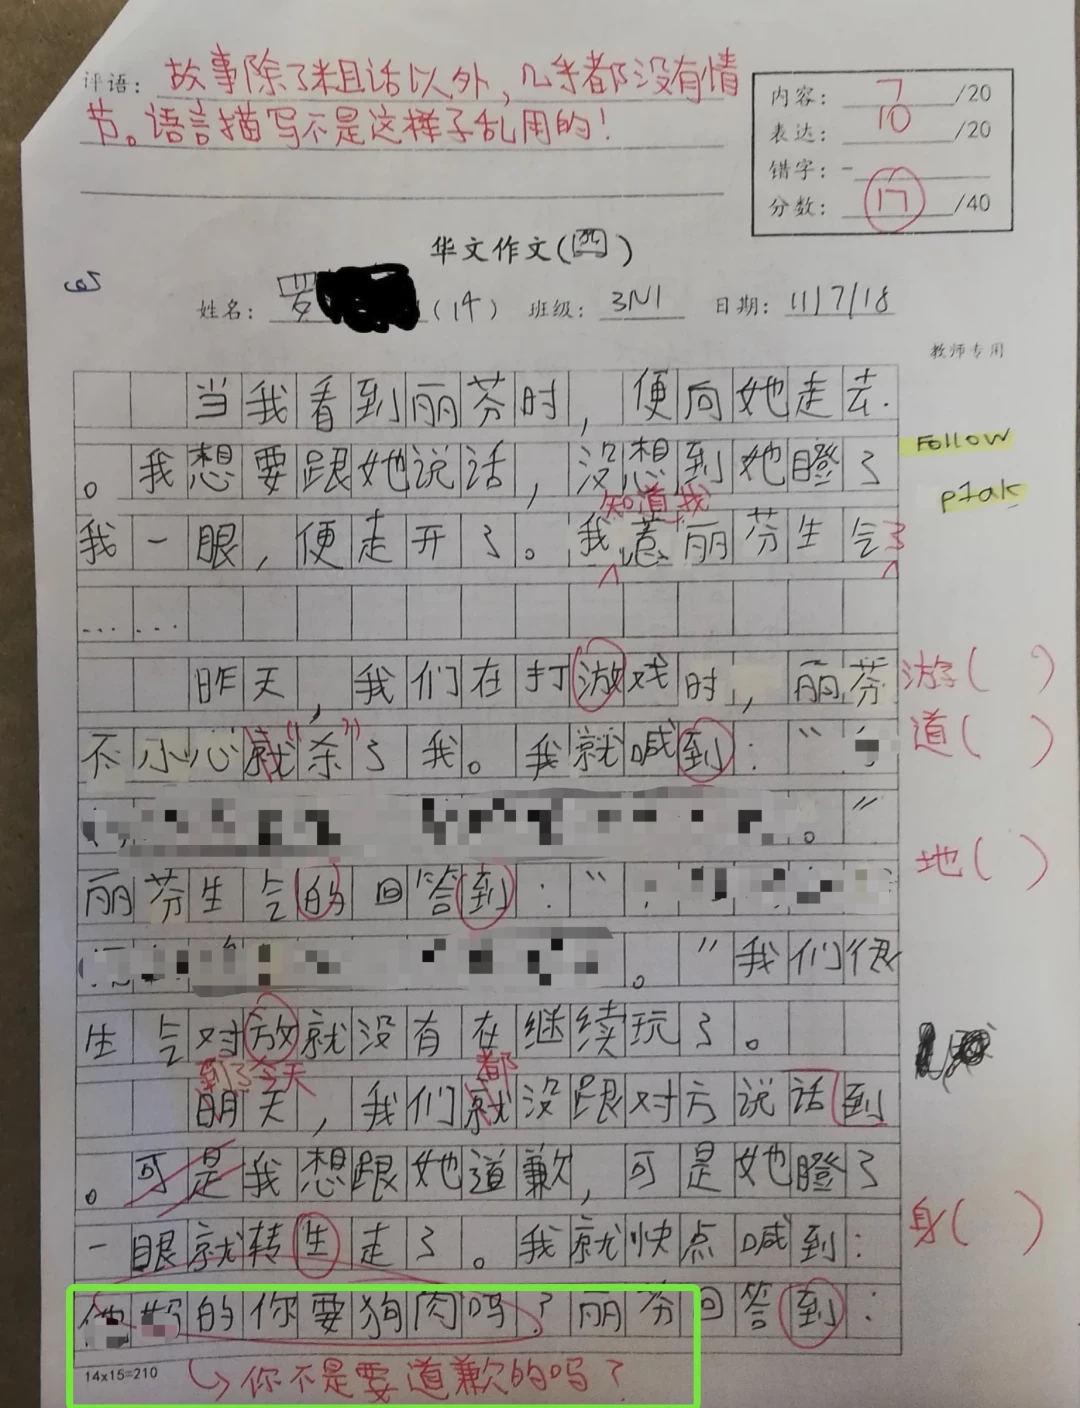 评语：故事除了粗话以外，几乎都没有情
节。语言描写不是这样子乱用的！
内容： 7 /20
表达： 10 /20
错字： -
分数： 17 /40
华文作文(四)
姓名： 罗 (14) 班级： 3N1 日期： 11/7/18
教师专用
当我看到丽芬时，便向她走去.
。我想要跟她说话，没想到她瞪了
Follow
p1ak
知道我
我一眼，便走开了。我惹丽芬生气了
……
昨天，我们在打游戏时，丽芬 游( )
不小心就"杀"了我。我就喊到：“ 道( )
。”
地( )
丽芬生气的回答到：“
。”我们很
生气对放就没有在继续玩了。
到了今天 都
明天，我们就没跟对方说话到
。可是我想跟她道歉，可是她瞪了
一眼就转生走了。我就快点喊到： 身( )
的你要狗肉吗？丽芬回答到：
14x15=210 你不是要道歉的吗？